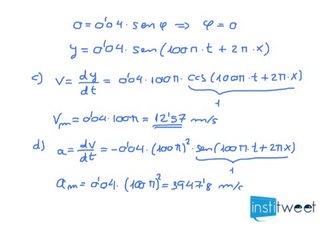 0 = 0'04 · sen φ ⇒ φ = 0
y = 0'04 · sen (100π · t + 2π · x)
c) v = dy/dt = 0'04 · 100π · cos (100π · t + 2π · x)
1
Vm = 0'04 · 100π = 12'57 m/s
d) a = dv/dt = -0'04 · (100π)² · sen (100π · t + 2πx)
1
am = 0'04 · (100π)² = 3947'8 m/s
institweet